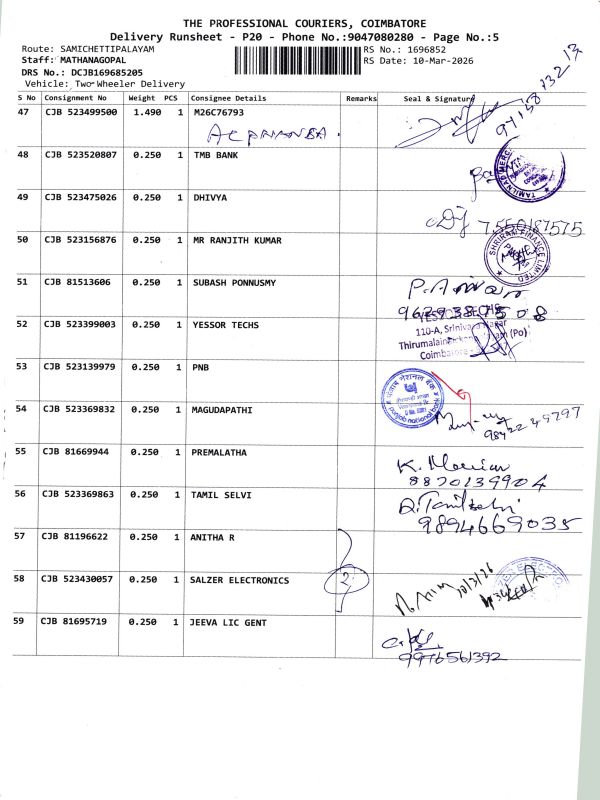 THE PROFESSIONAL COURIERS, COIMBATORE
Delivery Runsheet - P20 - Phone No.:9047080280 - Page No.:5
Route: SAMICHETTIPALAYAM
RS No.: 1696852
Staff: MATHANAGOPAL
RS Date: 10-Mar-2026
DRS No.: DCJB169685205
Vehicle: Two Wheeler Delivery
S No Consignment No Weight PCS Consignee Details Remarks Seal & Signature
47 CJB 523499500 1.490 1 M26C76793
48 CJB 523520807 0.250 1 TMB BANK
49 CJB 523475026 0.250 1 DHIVYA
50 CJB 523156876 0.250 1 MR RANJITH KUMAR
SHRIRAM FINANCE LIMITED
51 CJB 81513606 0.250 1 SUBASH PONNUSMY
52 CJB 523399003 0.250 1 YESSOR TECHS
110-A, Srinivasa Nagar
Coimbatore
53 CJB 523139979 0.250 1 PNB
पंजाब नैशनल बैंक
punjab national bank
54 CJB 523369832 0.250 1 MAGUDAPATHI
55 CJB 81669944 0.250 1 PREMALATHA
8870139904
56 CJB 523369863 0.250 1 TAMIL SELVI
9894669035
57 CJB 81196622 0.250 1 ANITHA R
58 CJB 523430057 0.250 1 SALZER ELECTRONICS
2
10/3/26
59 CJB 81695719 0.250 1 JEEVA LIC GENT
9976561392